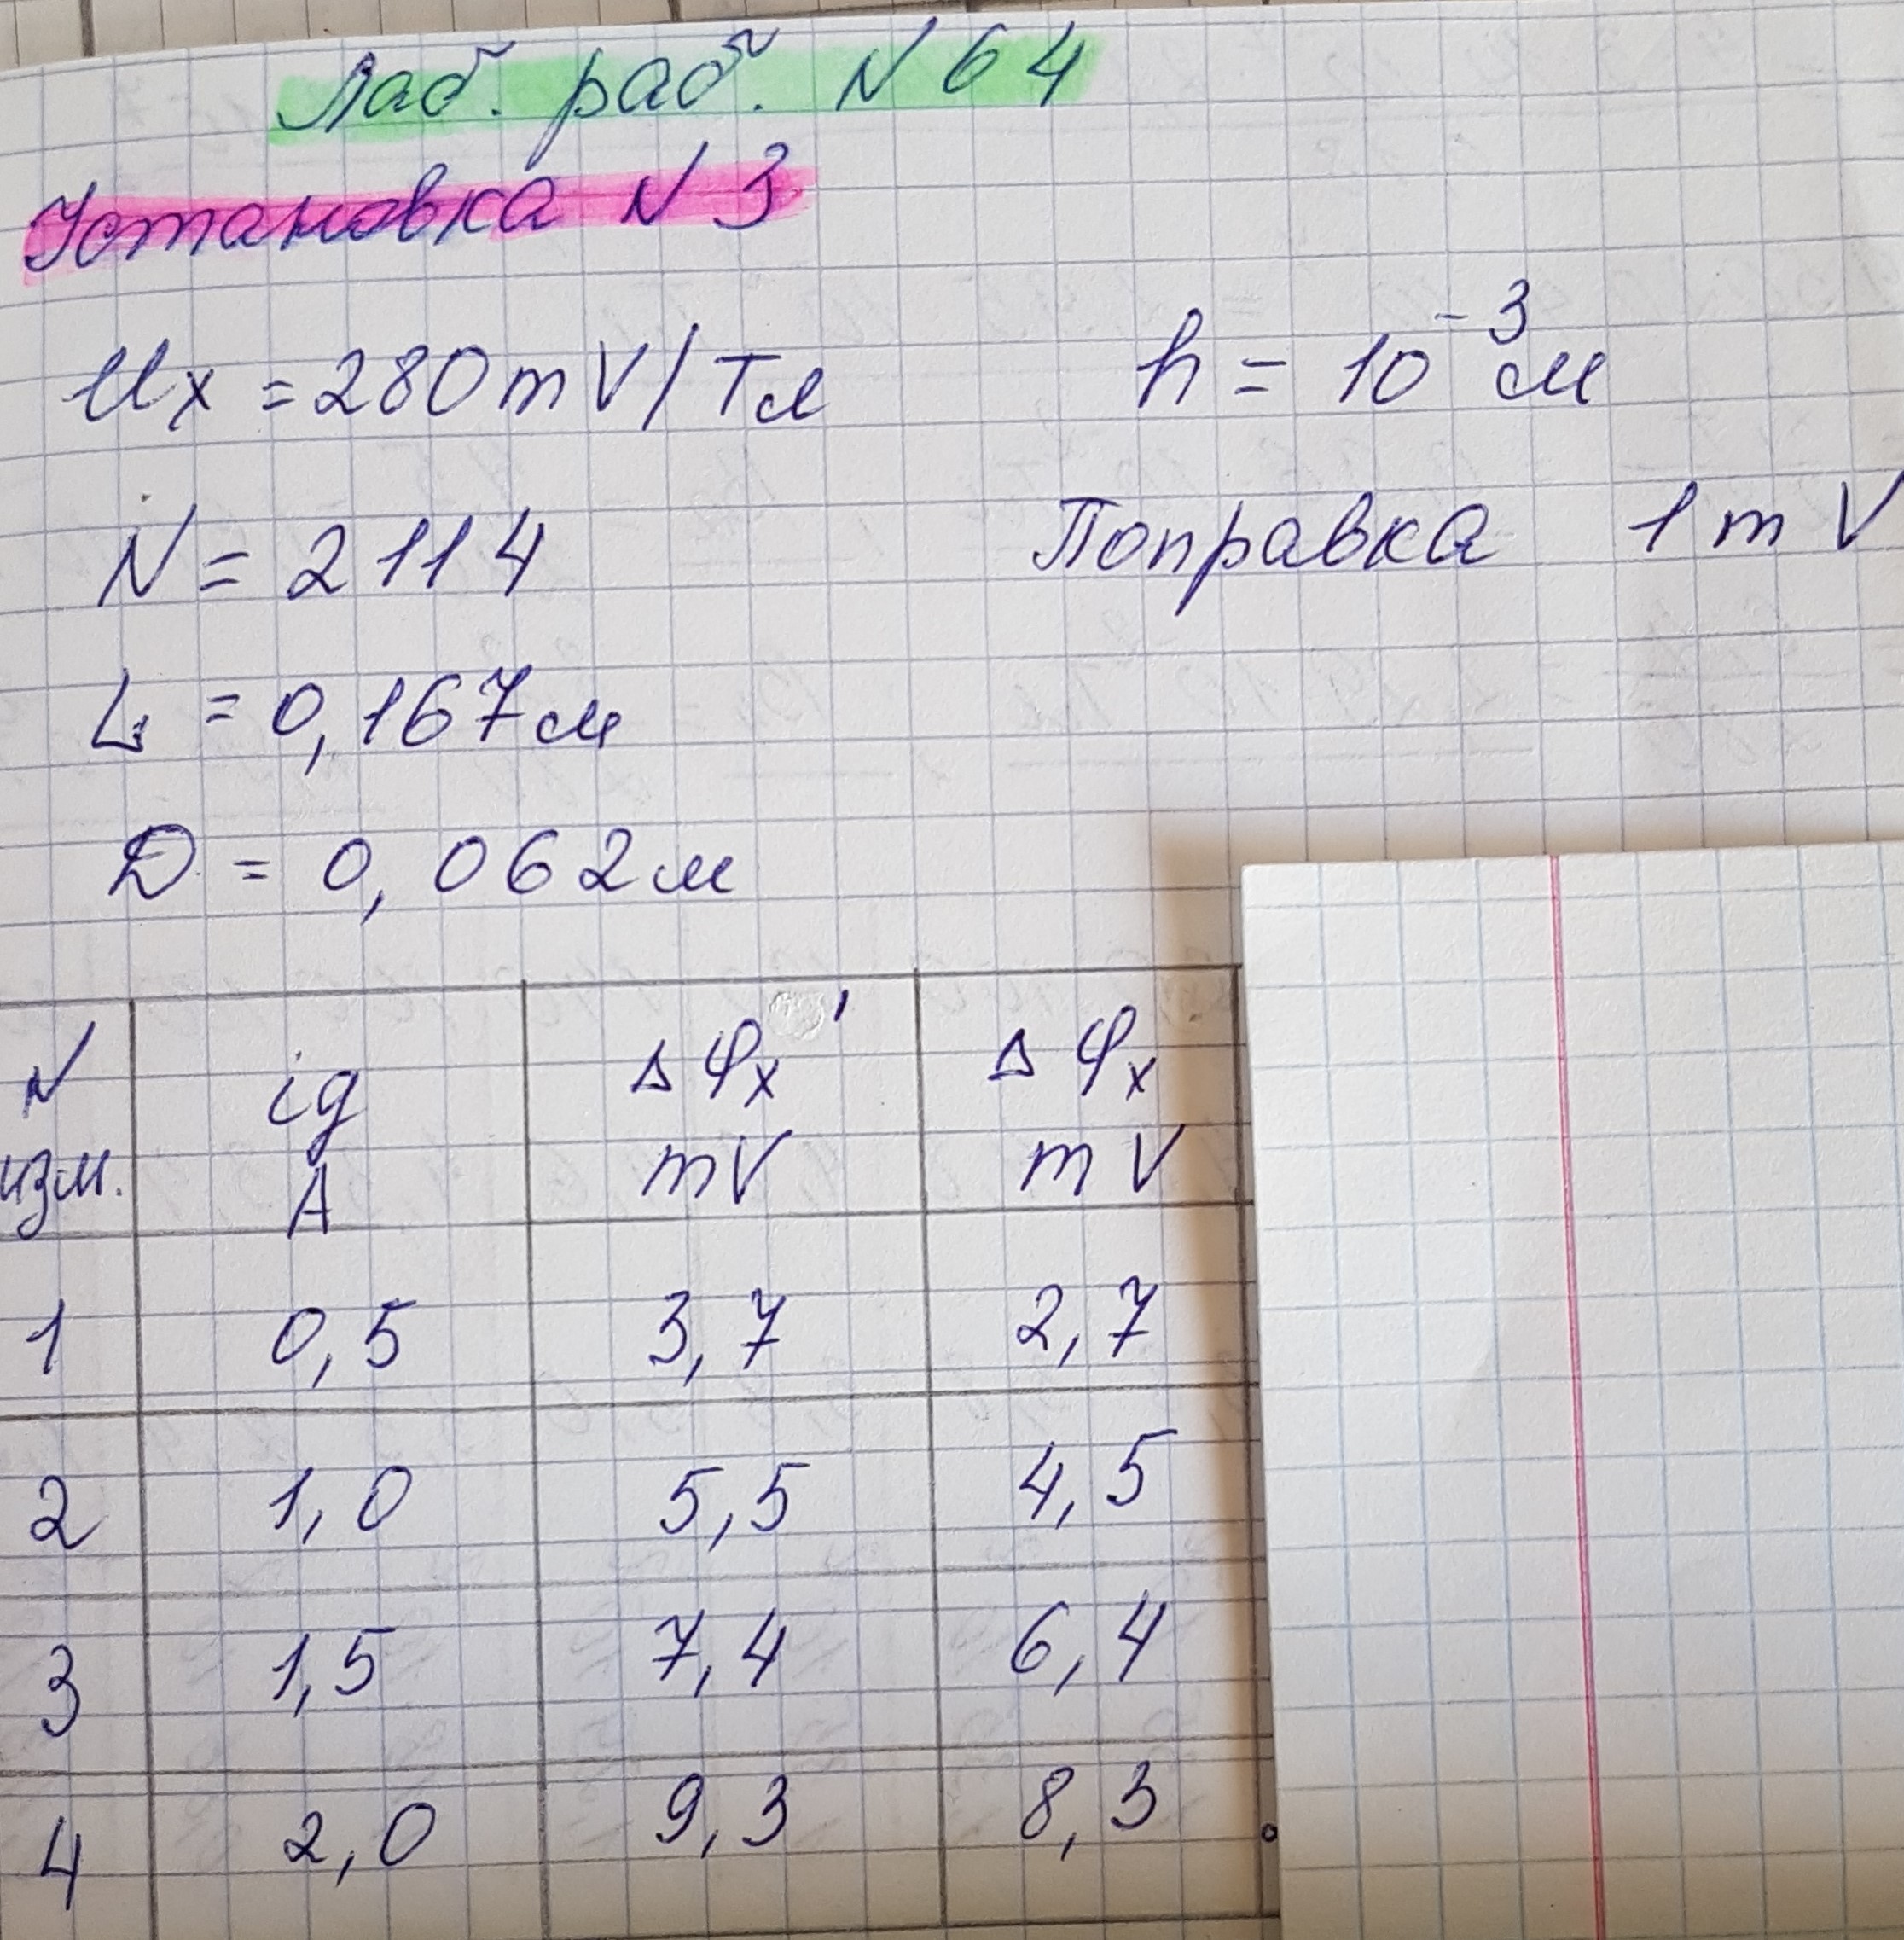 Лаб. раб. N 64
Установка N 3
Ux = 280 mV/Тл
h = 10⁻³ м
N = 2114
Поправка 1 mV
L = 0,167 м
D = 0,062 м
N изм. iд A Δφx' mV Δφx mV
1 0,5 3,7 2,7
2 1,0 5,5 4,5
3 1,5 7,4 6,4
4 2,0 9,3 8,3